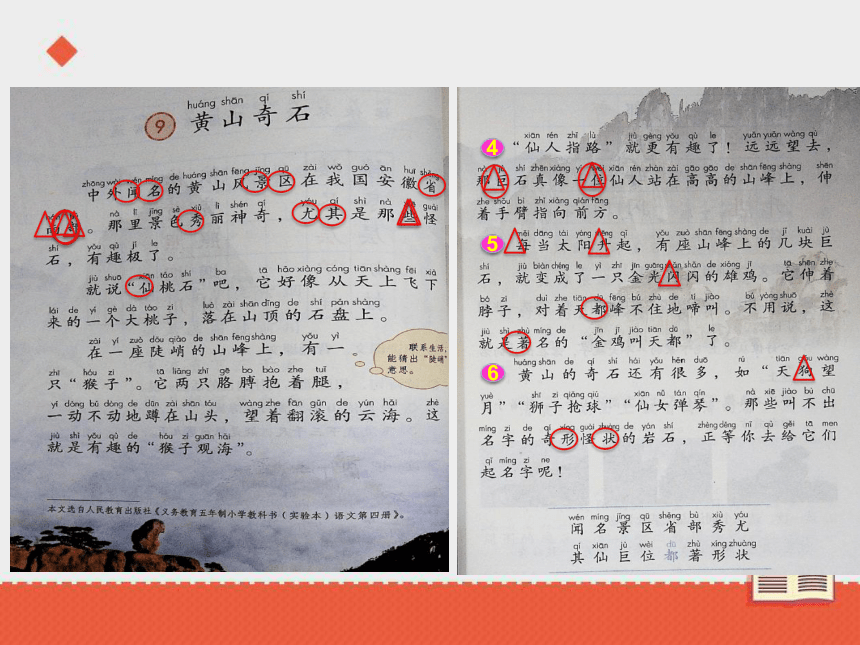 huáng shān qí shí
9 黄山奇石
zhōng wài wén míng de huáng shān fēng jǐng qū zài wǒ guó ān huī shěng
中外闻名的黄山风景区在我国安徽省
nà lǐ jǐng sè xiù lì shén qí yóu qí shì nà xiē guài
。那里景色秀丽神奇，尤其是那些怪
shí yǒu qù jí le
石，有趣极了。
jiù shuō xiān táo shí ba tā hǎo xiàng cóng tiān shàng fēi xià
就说“仙桃石”吧，它好像从天上飞下
lái de yí gè dà táo zi luò zài shān dǐng de shí pán shàng
来的一个大桃子，落在山顶的石盘上。
zài yí zuò dǒu qiào de shān fēng shàng yǒu yì
在一座陡峭的山峰上，有一
联系生活，
能猜出“陡峭”
意思。
zhī hóu zi tā liǎng zhī gē bo bào zhe tuǐ
只“猴子”。它两只胳膊抱着腿，
yí dòng bú dòng de dūn zài shān tóu wàng zhe fān gǔn de yún hǎi zhè
一动不动地蹲在山头，望着翻滚的云海。这
jiù shì yǒu qù de hóu zi guān hǎi
就是有趣的“猴子观海”。
本文选自人民教育出版社《义务教育五年制小学教科书（实验本）语文第四册》。
xiān rén zhǐ lù jiù gèng yǒu qù le yuǎn yuǎn wàng qù
4 “仙人指路”就更有趣了！远远望去，
nà jù shí zhēn xiàng yí wèi xiān rén zhàn zài gāo gāo de shān fēng shàng shēn
那巨石真像一位仙人站在高高的山峰上，伸
zhe shǒu bì zhǐ xiàng qián fāng
着手臂指向前方。
měi dāng tài yáng shēng qǐ yǒu zuò shān fēng shàng de jǐ kuài jù
5 每当太阳升起，有座山峰上的几块巨
shí jiù biàn chéng le yì zhī jīn guāng shǎn shǎn de xióng jī tā shēn zhe
石，就变成了一只金光闪闪的雄鸡。它伸着
bó zi duì zhe tiān dū fēng bú zhù de tí jiào bú yòng shuō zhè
脖子，对着天都峰不住地啼叫。不用说，这
jiù shì zhù míng de jīn jī jiào tiān dū le
就是著名的“金鸡叫天都”了。
huáng shān de qí shí hái yǒu hěn duō rú tiān gǒu wàng
6 黄山的奇石还有很多，如“天狗望
yuè shī zi qiǎng qiú xiān nǚ tán qín nà xiē jiào bù chū
月”“狮子抢球”“仙女弹琴”。那些叫不出
míng zi de qí xíng guài zhuàng de yán shí zhèng děng nǐ qù gěi tā men
名字的奇形怪状的岩石，正等你去给它们
qǐ míng zi ne
起名字呢！
wén míng jǐng qū shěng bù xiù yóu
闻名景区省部秀尤
qí xiān jù wèi dū zhù xíng zhuàng
其仙巨位都著形状